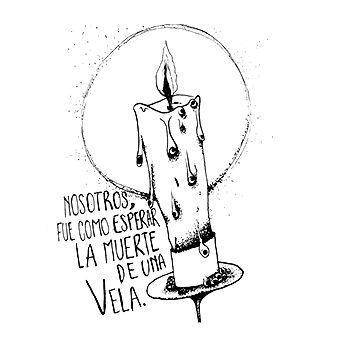 NOSOTROS,
FUE COMO ESPERAR
LA MUERTE
DE UNA
VELA.